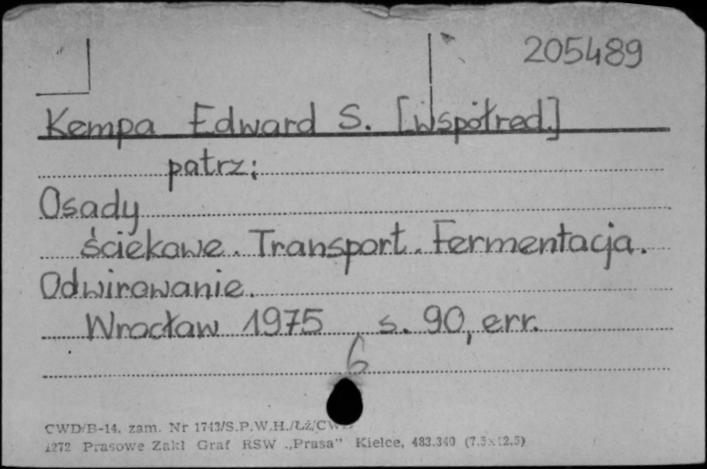 205489
Kempa Edward S. [Współred.]
patrz:
Osady
ściekowe. Transport. Fermentacja.
Odwirowanie.
Wrocław 1975 s. 90, err.
6
CWD/B-14. zam. Nr 1743/S.P.W.H./ŁŻ/CWD
1272 Prasowe Zakł Graf RSW „Prasa" Kielce, 483.340 (7.5x12.5)